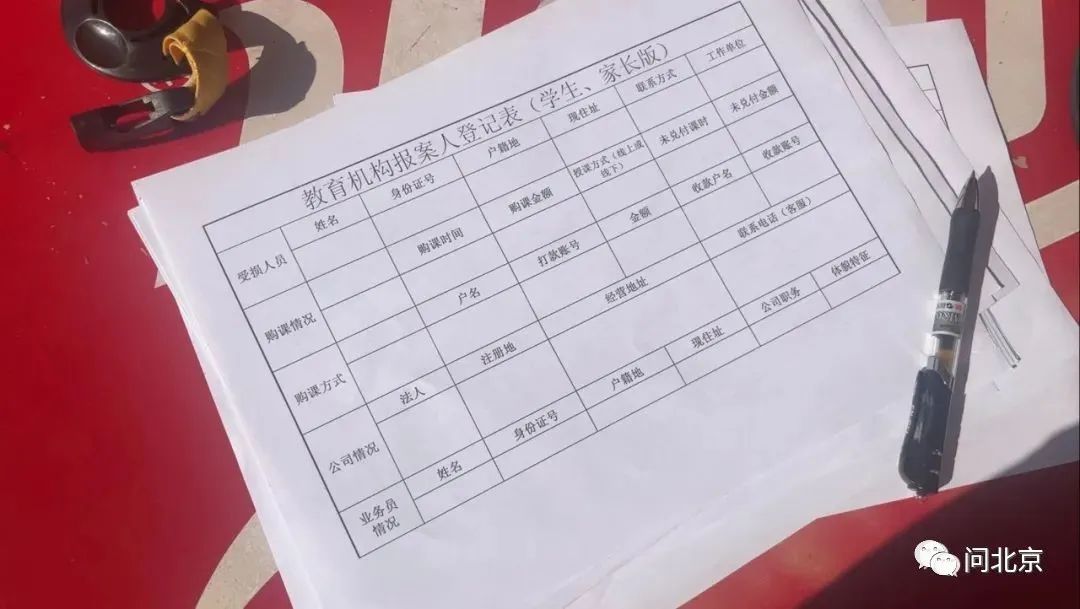 教育机构报案人登记表（学生、家长版）
受损人员 姓名 身份证号 户籍地 现住址 联系方式 工作单位
购课情况 购课时间 购课金额 授课方式（线上或
线下） 未兑付课时 未兑付金额
购课方式 户名 打款账号 金额 收款户名 收款账号
公司情况 法人 注册地 经营地址 联系电话（客服）
业务员
情况 姓名 身份证号 户籍地 现住址 公司职务 体貌特征
问北京